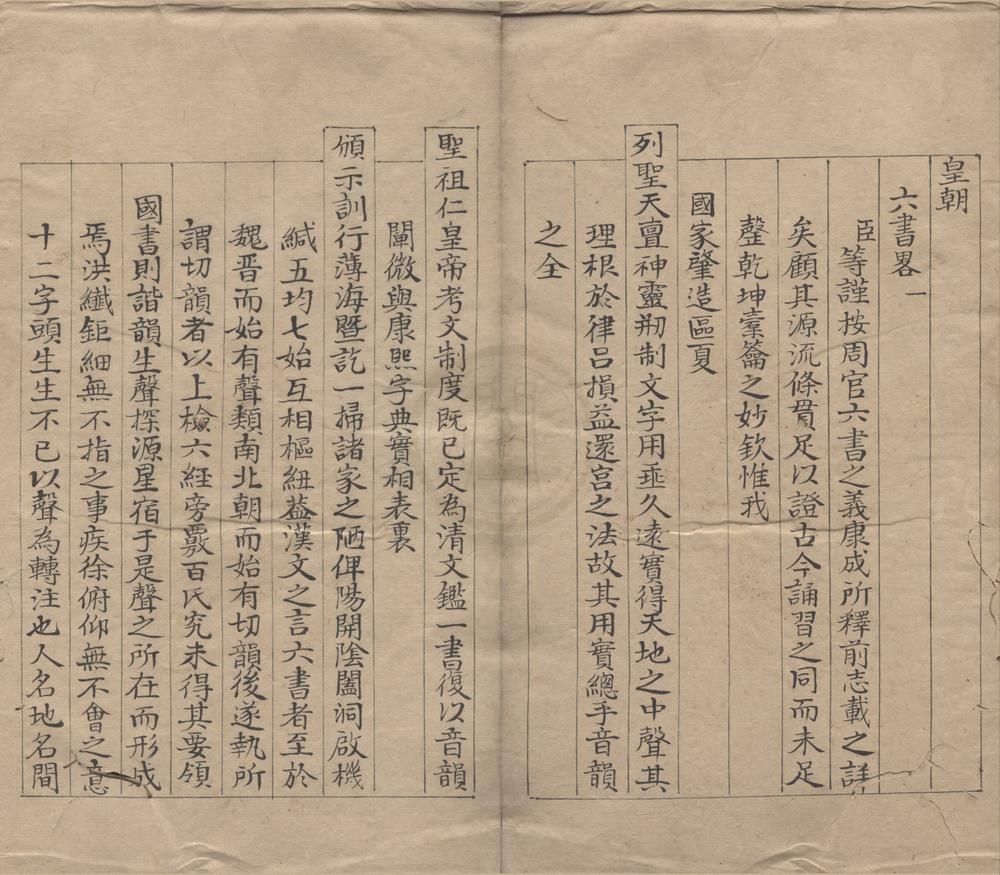 皇朝
六書畧一
臣等謹按周官六書之義康成所釋前志載之詳
矣顧其源流條貫足以證古今誦習之同而未足
罄乾坤橐籥之妙欽惟我
國家肇造區夏
列聖天亶神靈刱制文字用垂久遠實得天地之中聲其
理根於律呂損益還宮之法故其用實總乎音韻
之全
聖祖仁皇帝考文制度既已定為清文鑑一書復以音韻
闡微與康熙字典實相表裏
頒示訓行薄海曁訖一掃諸家之陋俾陽開陰闔洞啟機
緘五均七始互相樞紐蓋漢文之言六書者至於
魏晉而始有聲類南北朝而始有切韻後遂執所
謂切韻者以上檢六經旁覈百氏究未得其要領
國書則諧韻生聲探源星宿于是聲之所在而形成
焉洪纖鉅細無不指之事疾徐俯仰無不會之意
十二字頭生生不已以聲為轉注也人名地名間